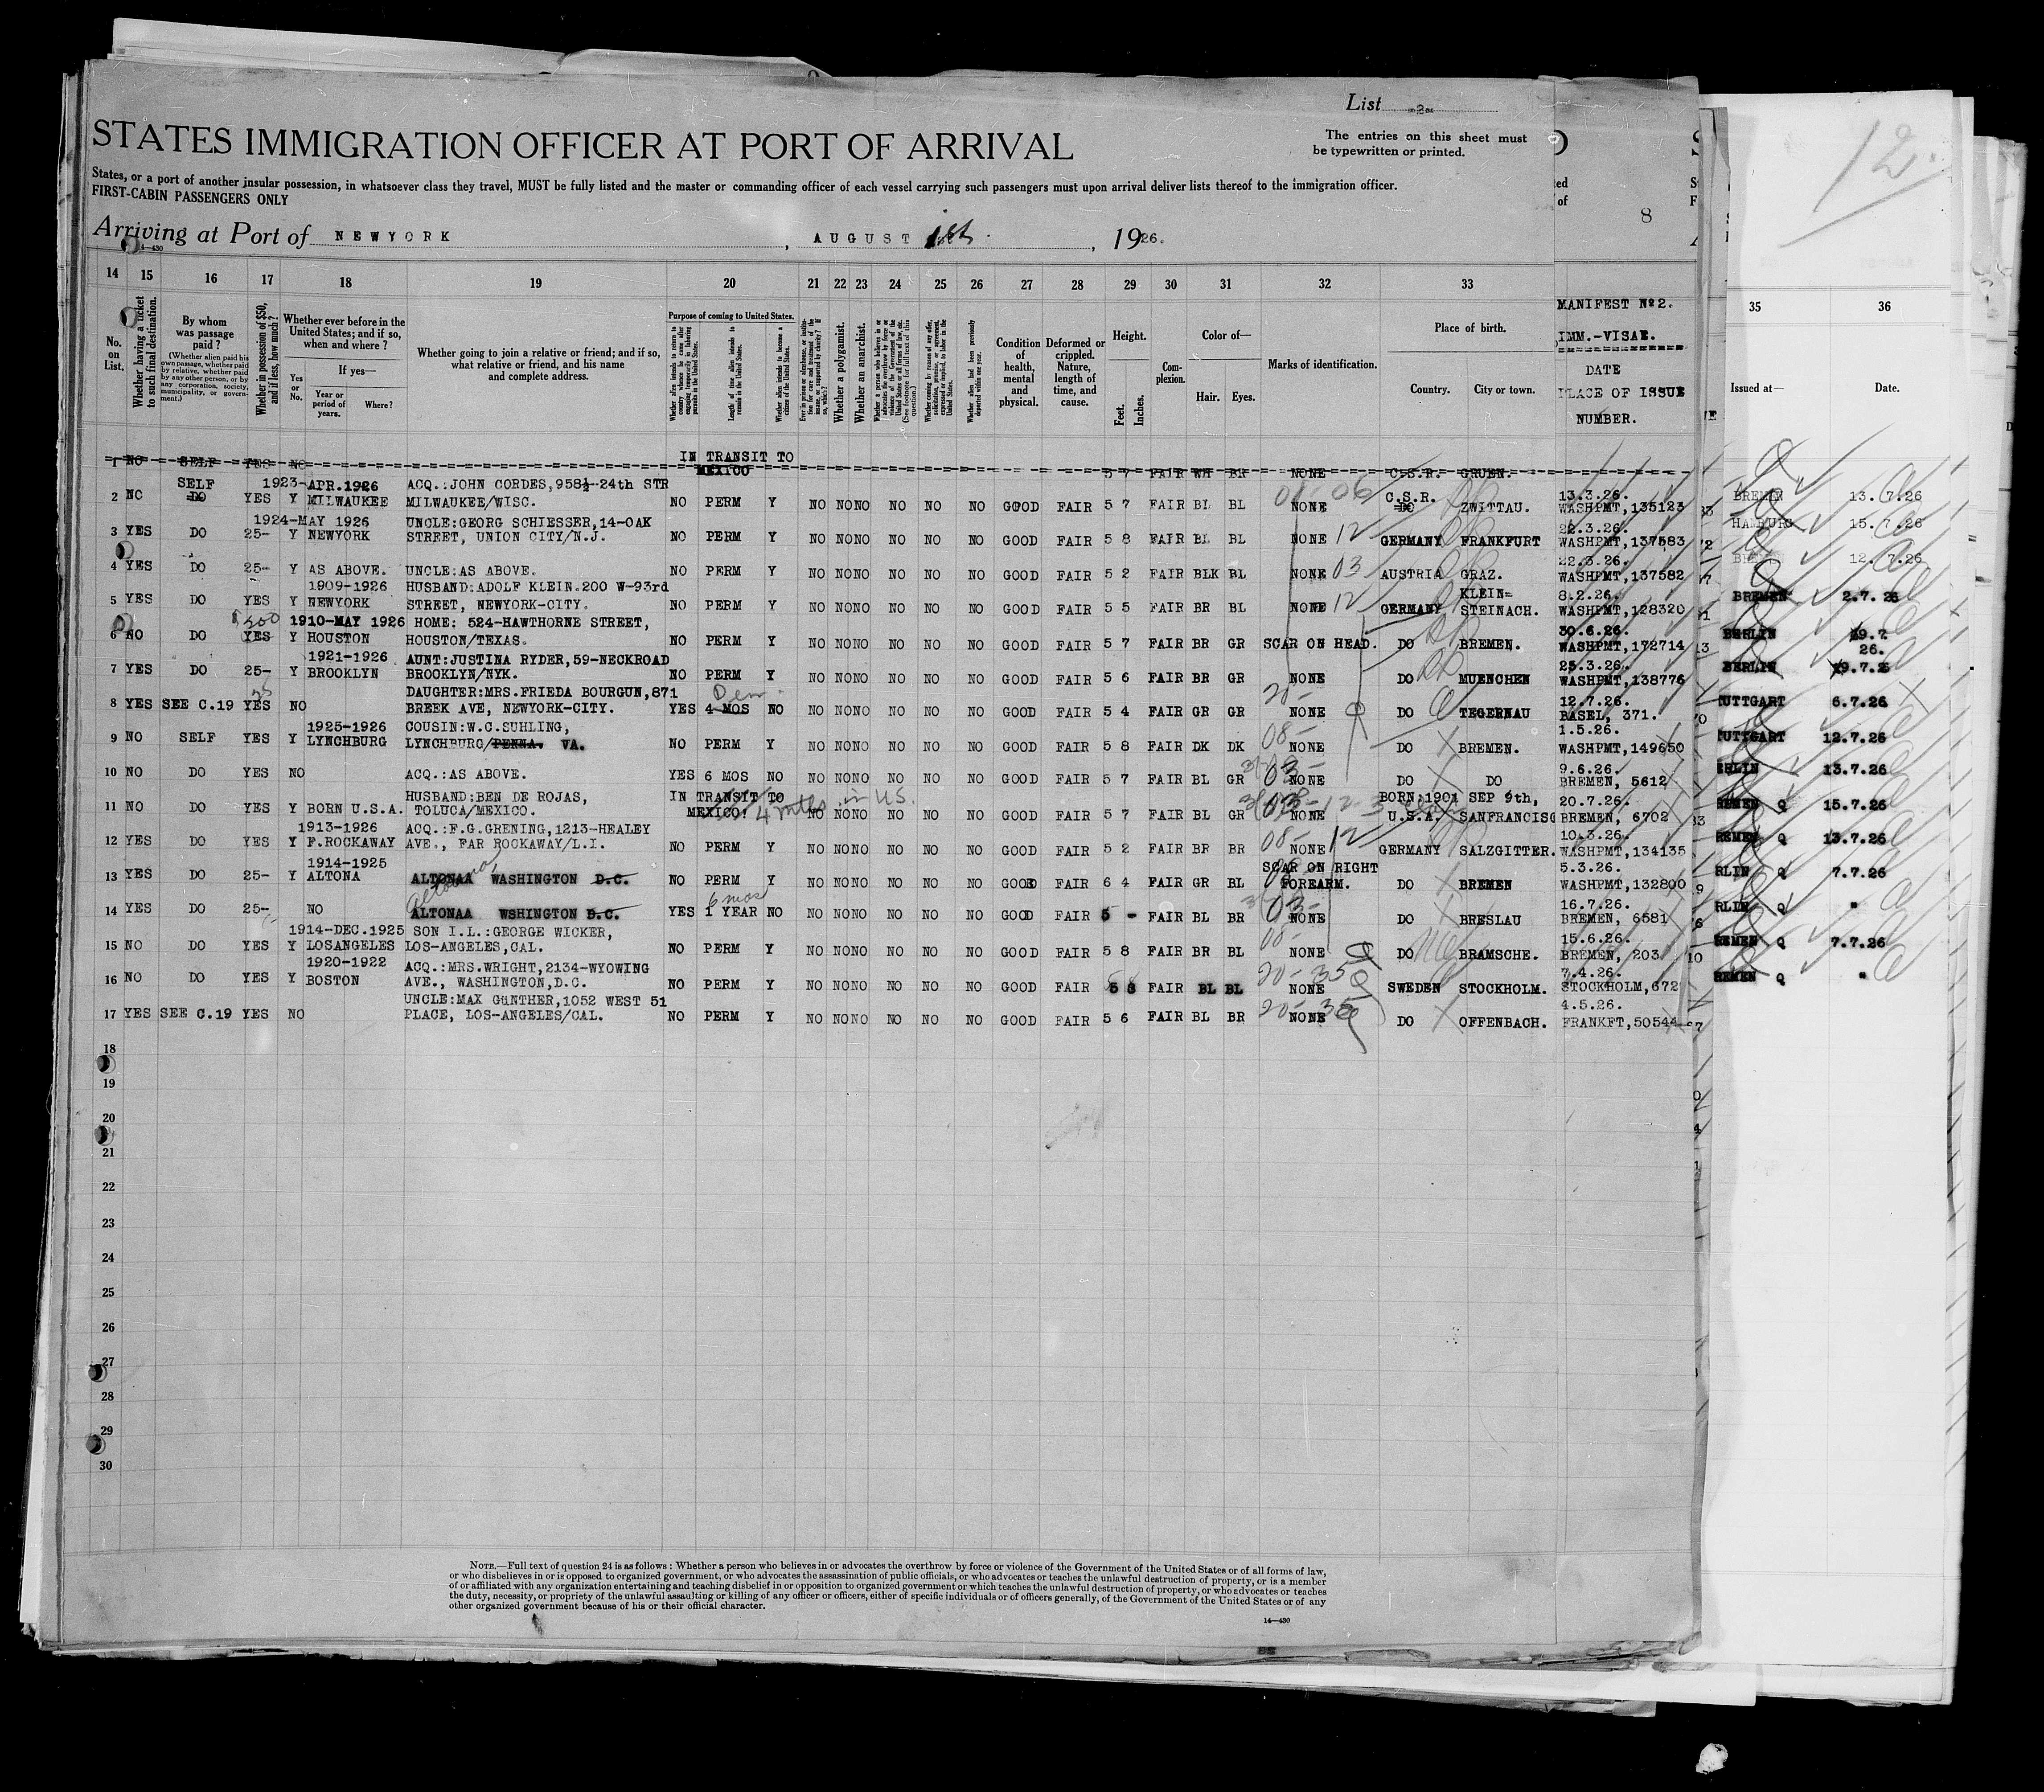 List 2
STATES IMMIGRATION OFFICER AT PORT OF ARRIVAL
The entries on this sheet must
be typewritten or printed.
States, or a port of another insular possession, in whatsoever class they travel, MUST be fully listed and the master or commanding officer of each vessel carrying such passengers must upon arrival deliver lists thereof to the immigration officer.
FIRST-CABIN PASSENGERS ONLY
Arriving at Port of NEWYORK, AUGUST 1st, 1926.
8
12.
14 15 16 17 18 19 20 21 22 23 24 25 26 27 28 29 30 31 32 33 35 36
No. on List.
Whether having a ticket to such final destination.
By whom was passage paid?
(Whether alien paid his own passage, whether paid by relative, whether paid by any other person, or by any corporation, society, municipality, or government.)
Whether in possession of $50, and if less, how much?
Whether ever before in the United States; and if so, when and where?
Yes or No.
If yes—
Year or period of years.
Where?
Whether going to join a relative or friend; and if so, what relative or friend, and his name and complete address.
Purpose of coming to United States.
Length of time alien intends to remain in the United States.
Whether alien intends to become a citizen of the United States.
Whether a polygamist.
Whether an anarchist.
Condition of health, mental and physical.
Deformed or crippled. Nature, length of time, and cause.
Height.
Feet. Inches.
Complexion.
Color of—
Hair. Eyes.
Marks of identification.
Place of birth.
Country. City or town.
MANIFEST Nº2.
IMM.-VISAE.
DATE
PLACE OF ISSUE
NUMBER.
Issued at—
Date.
IN TRANSIT TO
1 NO SELF YES NO MEXICO 5 7 FAIR WH BR NONE C.S.R. GRUEN.
SELF 1923-APR.1926 ACQ.:JOHN CORDES,958½-24th STR
2 NO DO YES Y MILWAUKEE MILWAUKEE/WISC. NO PERM Y NO NO NO NO NO NO GOOD FAIR 5 7 FAIR BL BL NONE C.S.R. DO ZWITTAU. 13.3.26. WASHPMT,135123
1924-MAY 1926 UNCLE:GEORG SCHIESSER,14-OAK
3 YES DO 25- Y NEWYORK STREET, UNION CITY/N.J. NO PERM Y NO NO NO NO NO NO GOOD FAIR 5 8 FAIR BL BL NONE 12 GERMANY FRANKFURT 22.3.26. WASHPMT,137583
4 YES DO 25- Y AS ABOVE. UNCLE:AS ABOVE. NO PERM Y NO NO NO NO NO NO GOOD FAIR 5 2 FAIR BLK BL NONE 03 AUSTRIA GRAZ. 22.3.26. WASHPMT,137582
1909-1926 HUSBAND:ADOLF KLEIN.200 W-93rd KLEIN-
5 YES DO YES Y NEWYORK STREET, NEWYORK-CITY. NO PERM Y NO NO NO NO NO NO GOOD FAIR 5 5 FAIR BR BL NONE 12 GERMANY STEINACH. 8.2.26. WASHPMT,128320
1910-MAY 1926 HOME: 524-HAWTHORNE STREET,
6 NO DO YES Y HOUSTON HOUSTON/TEXAS. NO PERM Y NO NO NO NO NO NO GOOD FAIR 5 7 FAIR BR GR SCAR ON HEAD. DO BREMEN. 30.6.26. WASHPMT,172714
1921-1926 AUNT:JUSTINA RYDER,59-NECKROAD
7 YES DO 25- Y BROOKLYN BROOKLYN/NYK. NO PERM Y NO NO NO NO NO NO GOOD FAIR 5 6 FAIR BR GR NONE DO MUENCHEN 25.3.26. WASHPMT,138776
DAUGHTER:MRS.FRIEDA BOURGUN,871
8 YES SEE C.19 YES NO BREEK AVE, NEWYORK-CITY. YES 4 MOS NO NO NO NO NO NO NO GOOD FAIR 5 4 FAIR GR GR NONE DO TEGERNAU 12.7.26. BASEL, 371.
1925-1926 COUSIN:W.C.SUHLING,
9 NO SELF YES Y LYNCHBURG LYNCHBURG/PENNA. VA. NO PERM Y NO NO NO NO NO NO GOOD FAIR 5 8 FAIR DK DK NONE DO BREMEN. 1.5.26. WASHPMT,149650
10 NO DO YES NO ACQ.:AS ABOVE. YES 6 MOS NO NO NO NO NO NO NO GOOD FAIR 5 7 FAIR BL GR NONE DO DO 9.6.26. BREMEN, 5612
HUSBAND:BEN DE ROJAS, IN TRANSIT TO BORN:1901 SEP 9th,
11 NO DO YES Y BORN U.S.A. TOLUCA/MEXICO. MEXICO! 4 mths in U.S. NO NO NO NO NO NO GOOD FAIR 5 7 FAIR BL GR NONE U.S.A. SANFRANCISC 20.7.26. BREMEN, 6702
1913-1926 ACQ.:F.G.GRENING,1213-HEALEY
12 YES DO YES Y F.ROCKAWAY AVE., FAR ROCKAWAY/L.I. NO PERM Y NO NO NO NO NO NO GOOD FAIR 5 2 FAIR BR BR NONE 12 GERMANY SALZGITTER. 10.3.26. WASHPMT,134135
1914-1925 SCAR ON RIGHT
13 YES DO 25- Y ALTONA ALTONAA WASHINGTON D.C. NO PERM Y NO NO NO NO NO NO GOOD FAIR 6 4 FAIR GR BL FOREARM. DO BREMEN 5.3.26. WASHPMT,132800
6 mos
14 YES DO 25- NO ALTONAA WSHINGTON D.C. YES 1 YEAR NO NO NO NO NO NO NO GOOD FAIR 5 - FAIR BL BR NONE DO BRESLAU 16.7.26. BREMEN, 6581
1914-DEC.1925 SON I.L.:GEORGE WICKER,
15 NO DO YES Y LOSANGELES LOS-ANGELES,CAL. NO PERM Y NO NO NO NO NO NO GOOD FAIR 5 8 FAIR BR BL NONE DO BRAMSCHE. 15.6.26. BREMEN, 203
1920-1922 ACQ.:MRS.WRIGHT,2134-WYOWING
16 NO DO YES Y BOSTON AVE., WASHINGTON,D.C. NO PERM Y NO NO NO NO NO NO GOOD FAIR 5 8 FAIR BL BL NONE SWEDEN STOCKHOLM. 7.4.26. STOCKHOLM,672
UNCLE:MAX GUNTHER,1052 WEST 51
17 YES SEE C.19 YES NO PLACE, LOS-ANGELES/CAL. NO PERM Y NO NO NO NO NO NO GOOD FAIR 5 6 FAIR BL BR NONE DO OFFENBACH. 4.5.26. FRANKFT,50544
18
19
20
21
22
23
24
25
26
27
28
29
30
BREMEN 13.7.26
HAMBURG 15.7.26
12.7.26
BREMEN 2.7.26
BERLIN 19.7.26.
BERLIN 19.7.26
TUTTGART 6.7.26
TUTTGART 12.7.26
RLIN 13.7.26
REMEN Q 15.7.26
REMEN Q 13.7.26
RLIN Q 7.7.26
RLIN Q "
REMEN Q 7.7.26
REMEN Q "
NOTE.—Full text of question 24 is as follows: Whether a person who believes in or advocates the overthrow by force or violence of the Government of the United States or of all forms of law,
or who disbelieves in or is opposed to organized government, or who advocates the assassination of public officials, or who advocates or teaches the unlawful destruction of property, or is a member
of or affiliated with any organization entertaining and teaching disbelief in or opposition to organized government or which teaches the unlawful destruction of property, or who advocates or teaches
the duty, necessity, or propriety of the unlawful assaulting or killing of any officer or officers, either of specific individuals or of officers generally, of the Government of the United States or of any
other organized government because of his or their official character.
14—430